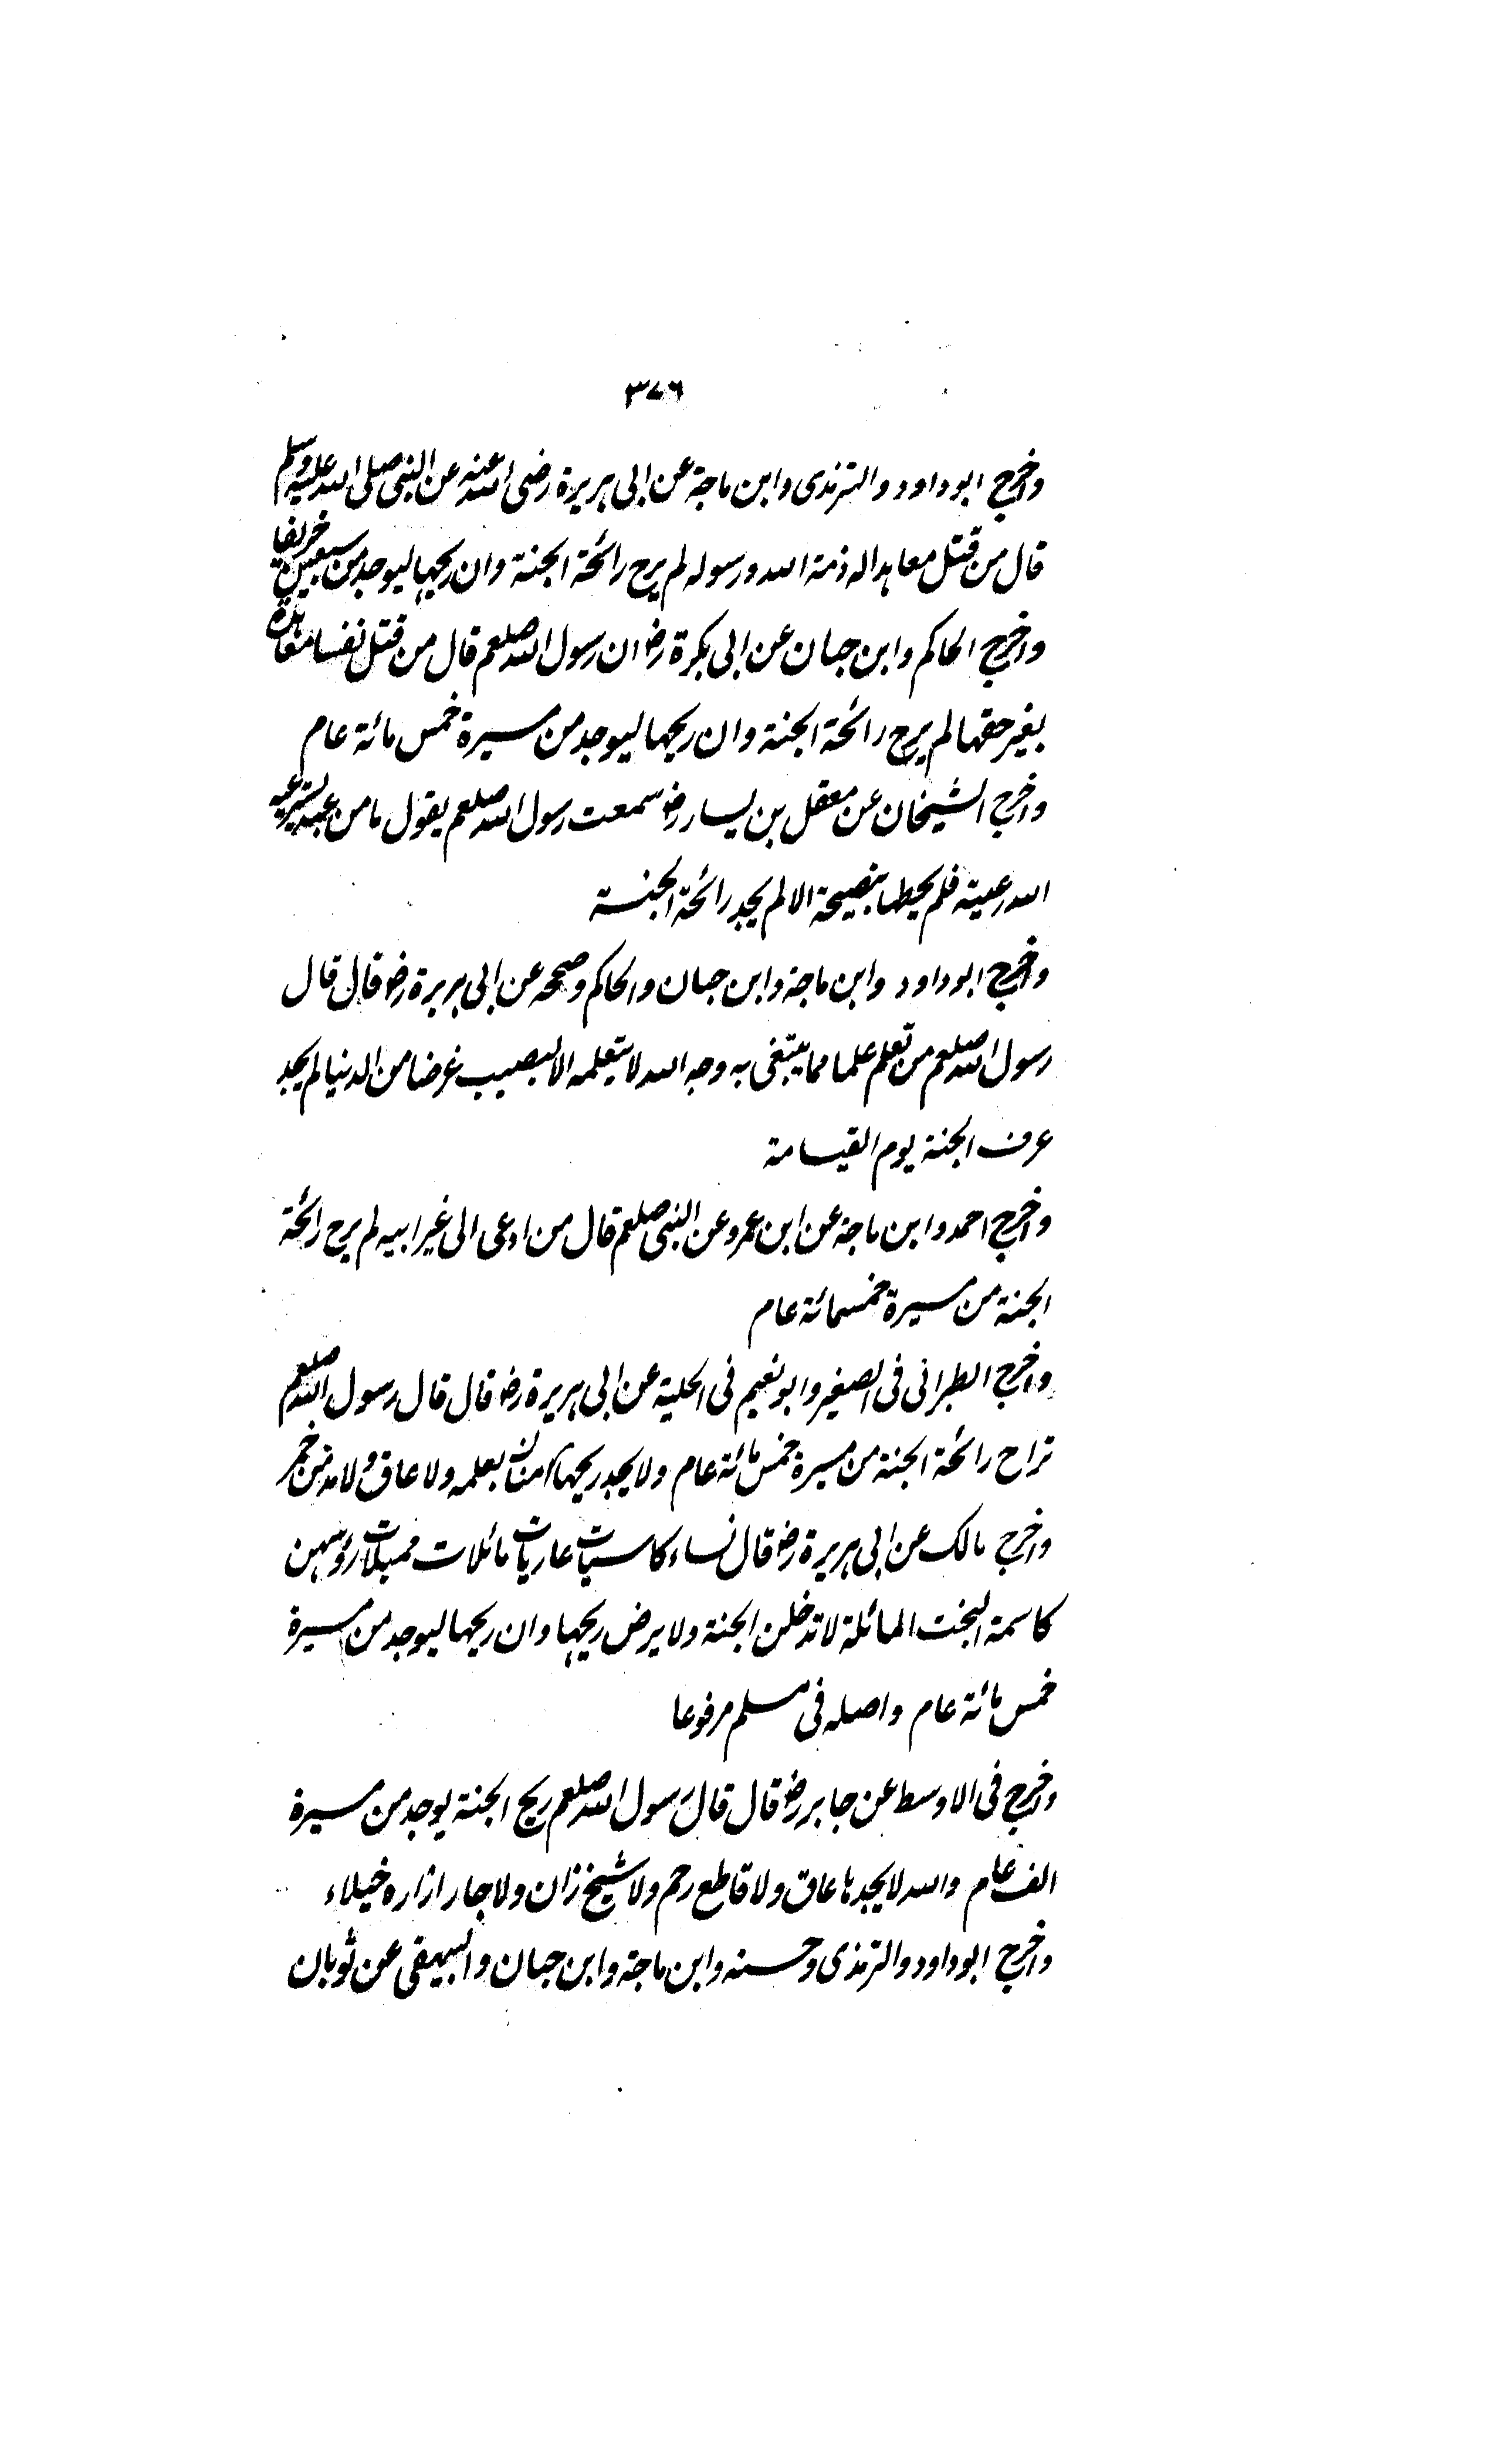 ٣٧٦
واخرج ابو داود والترمذى وابن ماجة عن ابى هريرة رضى الله عنه عن النبى صلى الله عليه وسلم
قال من قتل معاهدا له ذمة الله ورسوله لم يرح رائحة الجنة وان ريحها ليوجد من سبعين خريفا
واخرج الحاكم وابن حبان عن ابى بكرة رض ان رسول الله صلعم قال من قتل نفسا معاهدة
بغير حقها لم يرح رائحة الجنة وان ريحها ليوجد من مسيرة خمس مائة عام
واخرج الشيخان عن معقل بن يسار رض سمعت رسول الله صلعم يقول ما من عبد يسترعيه
الله رعية فلم يحطها بنصيحة الا لم يجد رائحة الجنة
واخرج ابو داود وابن ماجة وابن حبان والحاكم وصححه عن ابى هريرة رض قال قال
رسول الله صلعم من تعلم علما مما يبتغى به وجه الله لا يتعلمه الا ليصيب غرضا من الدنيا لم يجد
عرف الجنة يوم القيامة
واخرج احمد وابن ماجة عن ابن عمرو عن النبى صلعم قال من ادعى الى غير ابيه لم يرح رائحة
الجنة من مسيرة خمسمائة عام
واخرج الطبرانى فى الصغير وابو نعيم فى الحلية عن ابى هريرة رض قال قال رسول الله صلعم
تراح رائحة الجنة من مسيرة خمس مائة عام ولا يجد ريحها منان بعلمه ولا عاق ولا مدمن خمر
واخرج مالك عن ابى هريرة رض قال نساء كاسيات عاريات مائلات مميلات رؤسهن
كاسمة البخت المائلة لا تدخلن الجنة ولا يرض ريحها وان ريحها ليوجد من مسيرة
خمس مائة عام واصله فى مسلم مرفوعا
واخرج فى الاوسط عن جابر رض قال قال رسول الله صلعم ريح الجنة يوجد من مسيرة
الف عام والله لا يجدها عاق ولا قاطع رحم ولا شيخ زان ولا جار ازاره خيلاء
واخرج ابو داود والترمذى وحسنه وابن ماجة وابن حبان والبيهقى عن ثوبان